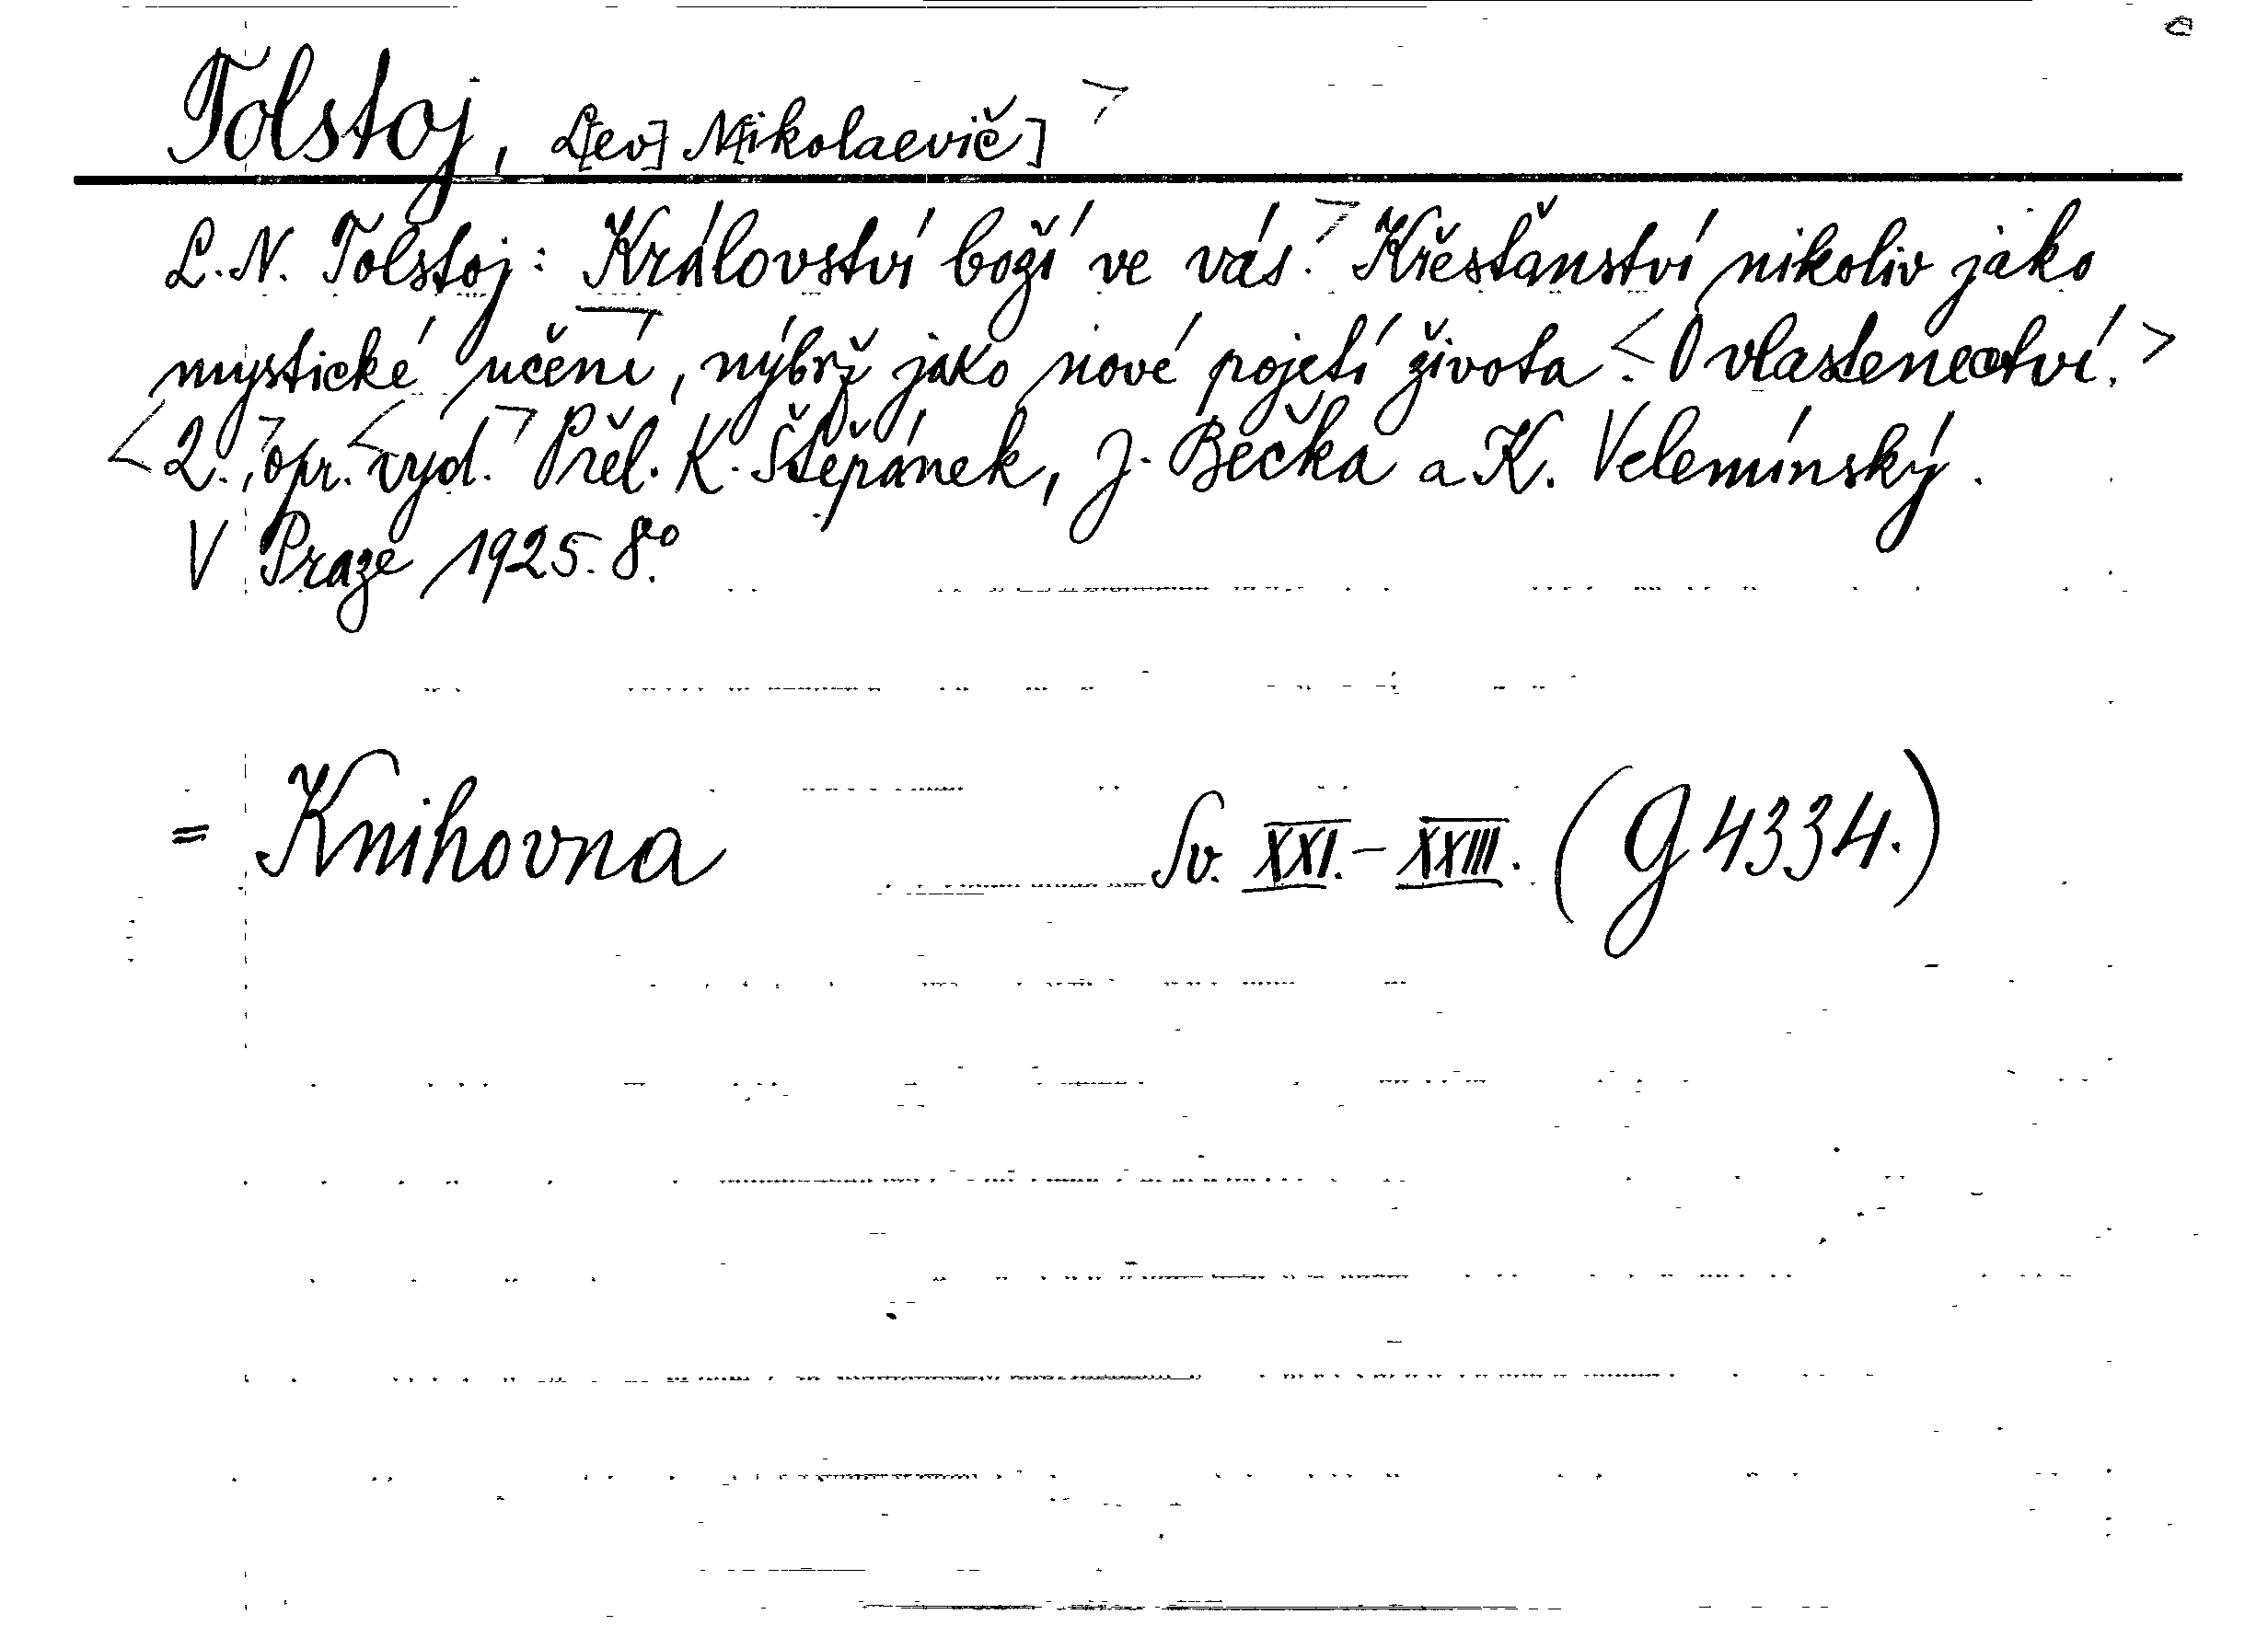 Tolstoj, L[ev] N[ikolaevič]
L. N. Tolstoj: Království boží ve vás. Křesťanství nikoliv jako
mystické učení, nýbrž jako nové pojetí života. <O vlastenectví.>
<2., opr. vyd. Přel. K. Štěpánek, J. Bečka a K. Velemínský.
V Praze 1925. 8°.
= Knihovna Sv. XXI. – XXIII. (G 4334.)